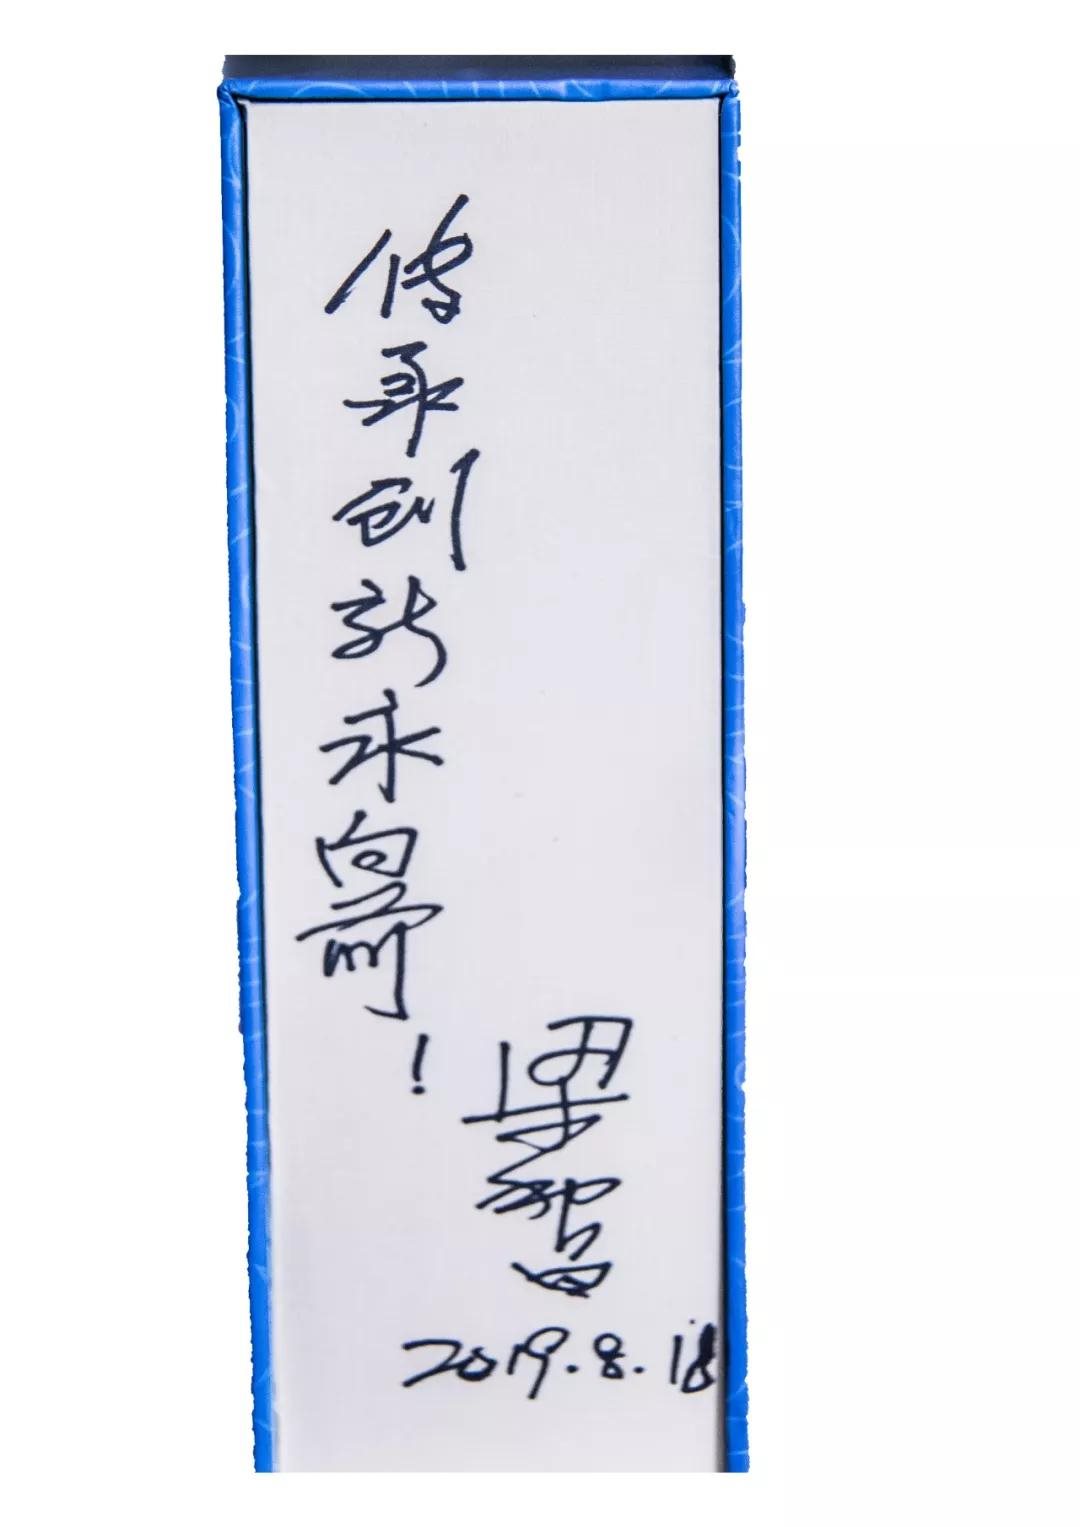 传承创新永向前！
梁智
2019.8.18